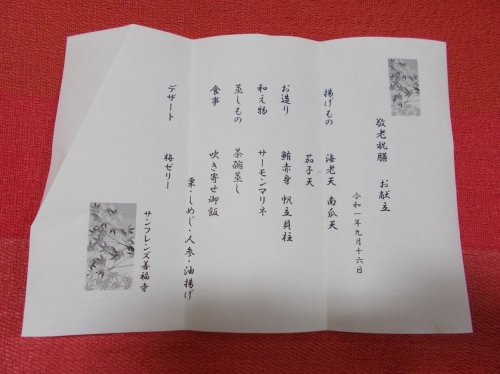 敬老祝膳 お献立
令和一年九月十六日
揚げもの 海老天 南瓜天
茄子天
お造り 鮪赤身 帆立貝柱
和え物 サーモンマリネ
蒸しもの 茶碗蒸し
食事 吹き寄せ御飯
栗・しめじ・人参・油揚げ
デザート 梅ゼリー
サンフレンズ善福寺